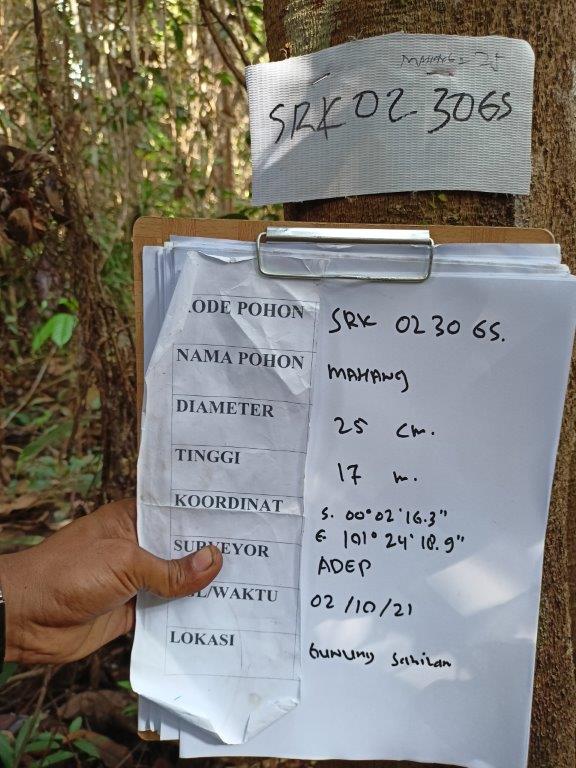 MAHANG 25
SRK 02 30 GS
.ODE POHON SRK 0230 GS.
NAMA POHON MAHANG
DIAMETER 25 cm.
TINGGI 17 m.
KOORDINAT S. 00°02'16.3"
E 101°24'18.9"
SURVEYOR ADEP
GL/WAKTU 02/10/21
LOKASI GUNUNG Sahilan